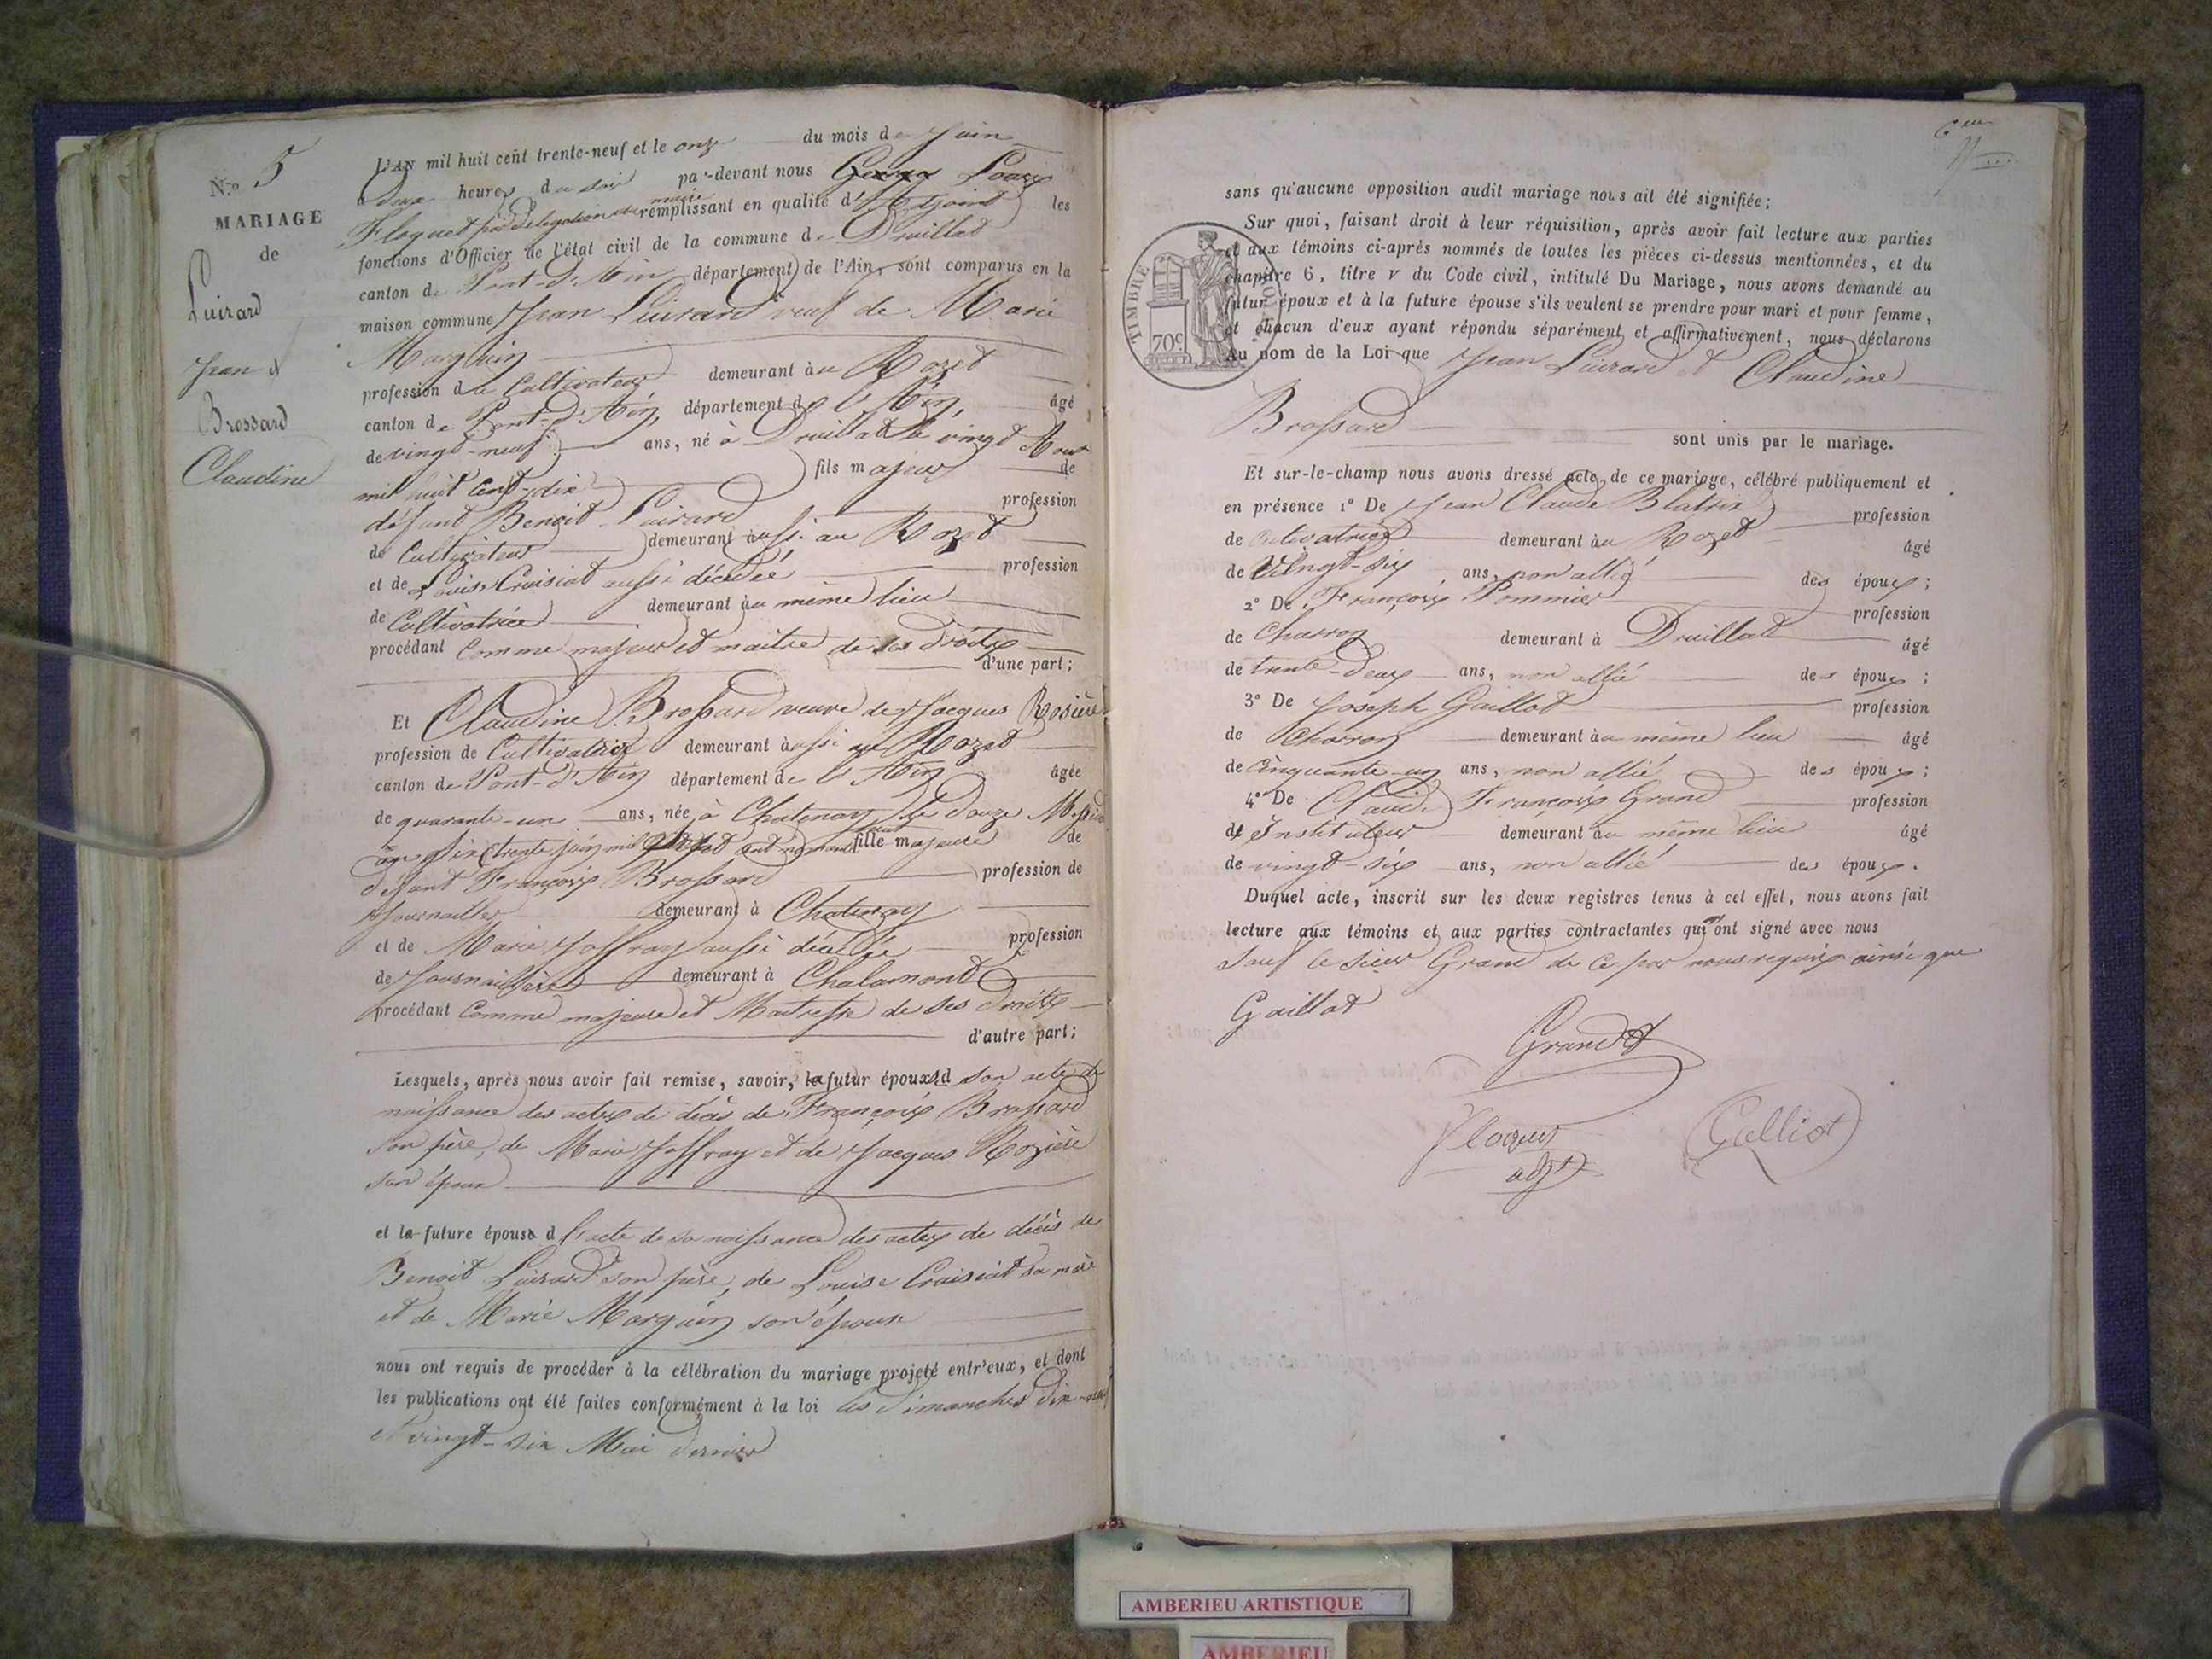 N.º 5
MARIAGE
de
Luirard
Jean et
Brossard
Claudine
L'AN mil huit cent trente-neuf et le onze du mois de Juin
à deux heures du soir par-devant nous Louis
Floquet par délégation du maire remplissant en qualité d'Adjoint les
fonctions d'Officier de l'état civil de la commune de Druillat
canton de Pont-d'Ain département de l'Ain, sont comparus en la
maison commune Jean Luirard veuf de Marie
Marguin
profession de Cultivateur demeurant au Rozet
canton de Pont-d'Ain, département de l'Ain, âgé
de vingt-neuf ans, né à Druillat le vingt Aout
mil huit cent-dix fils majeur de
défunt Benoit Luirard profession
de Cultivateur demeurant aussi au Rozet
et de Louise Cruisiat aussi décédée profession
de Cultivatrice demeurant au même lieu
procédant Comme majeur et maitre de ses droits
d'une part;
Et Claudine Brossard veuve de Jacques Rosière
profession de Cultivatrice demeurant aussi au Rozet
canton de Pont-d'Ain département de l'Ain âgée
de quarante-un ans, née à Chatenay le douze Messidor
an six (trente juin mil sept cent fille majeure de
défunt François Brossard profession de
Journalier demeurant à Chatenay
et de Marie Joffray aussi décédée profession
de Journalière demeurant à Chalamont
procédant Comme majeure et Maitresse de ses droits
d'autre part;
Lesquels, après nous avoir fait remise, savoir, la futur épouse d son acte de
naissance des actes de décès de François Brossard
son père, de Marie Joffray et de Jacques Rozière
son époux
et le future épous d l'acte de sa naissance des actes de décès de
Benoit Luirard son père, de Louise Cruisiat sa mère
et de Marie Marguin son épouse
nous ont requis de procéder à la célébration du mariage projeté entr'eux, et dont
les publications ont été faites conformément à la loi les dimanches dix-neuf
et vingt-six Mai dernier
6eme
sans qu'aucune opposition audit mariage nous ait été signifiée;
Sur quoi, faisant droit à leur réquisition, après avoir fait lecture aux parties
et aux témoins ci-après nommés de toutes les pièces ci-dessus mentionnées, et du
chapitre 6, titre v du Code civil, intitulé Du Mariage, nous avons demandé au
futur époux et à la future épouse s'ils veulent se prendre pour mari et pour femme,
et chacun d'eux ayant répondu séparément et affirmativement, nous déclarons
Au nom de la Loi que Jean Luirard et Claudine
TIMBRE ROYAL
70c
Brossard
sont unis par le mariage.
Et sur-le-champ nous avons dressé acte de ce mariage, célébré publiquement et
en présence 1º De Jean Claude Blatrix profession
de Cultivatrice demeurant au Rozet âgé
de Vingt-six ans, non allié des époux;
2º De François Pommier profession
de Charron demeurant à Druillat âgé
de trente-deux ans, non allié des époux;
3º De Joseph Gaillot profession
de Charron demeurant au même lieu âgé
de Cinquante-un ans, non allié des époux;
4º De Claude François Grand profession
d'Instituteur demeurant au même lieu âgé
de vingt-six ans, non allié des époux.
Duquel acte, inscrit sur les deux registres tenus à cet effet, nous avons fait
lecture aux témoins et aux parties contractantes qui n'ont signé avec nous
sauf le sieur Grand de ce par nous requis ainsi que
Gaillot
Grand
Floquet
adjt
Galliot
AMBERIEU ARTISTIQUE
AMBERIEU